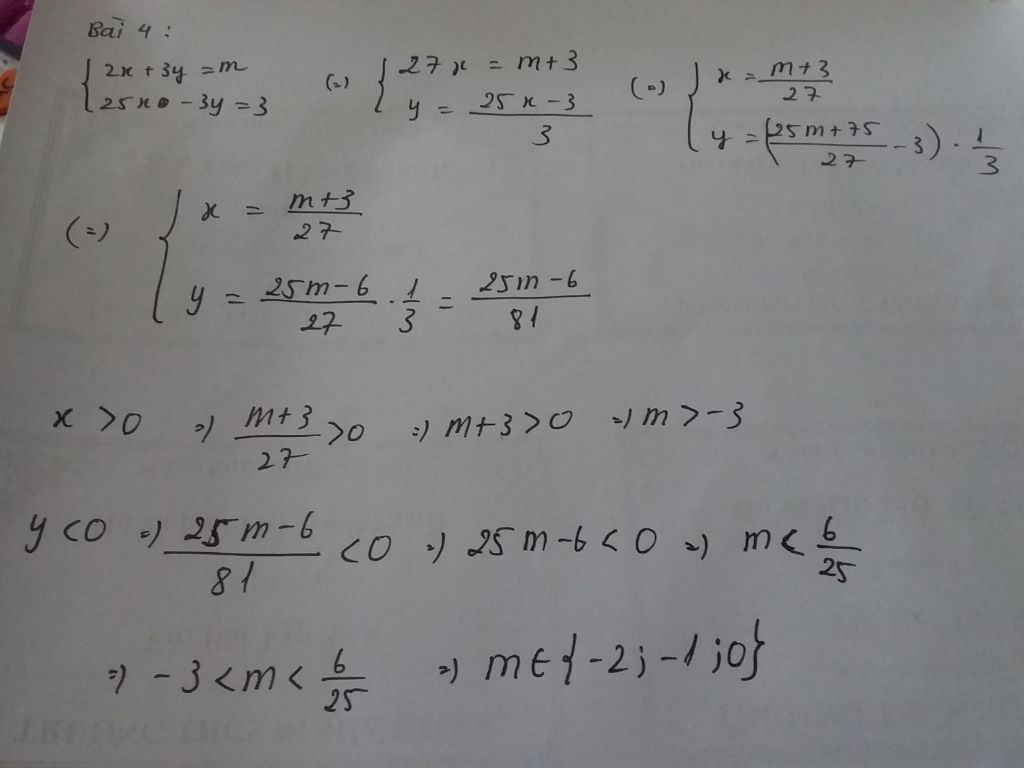 Bài 4 :
{ 2x + 3y = m
25x - 3y = 3 (=) { 27x = m+3
y = \frac{25x-3}{3} (=) { x = \frac{m+3}{27}
y = (\frac{25m+75}{27} - 3) . \frac{1}{3}
(=) { x = \frac{m+3}{27}
y = \frac{25m-6}{27} . \frac{1}{3} = \frac{25m-6}{81}
x >0 =) \frac{m+3}{27} >0 =) m+3 >0 =) m > -3
y <0 =) \frac{25m-6}{81} <0 =) 25m-6 < 0 =) m < \frac{6}{25}
=) -3 < m < \frac{6}{25} =) m ∈ {-2; -1; 0}